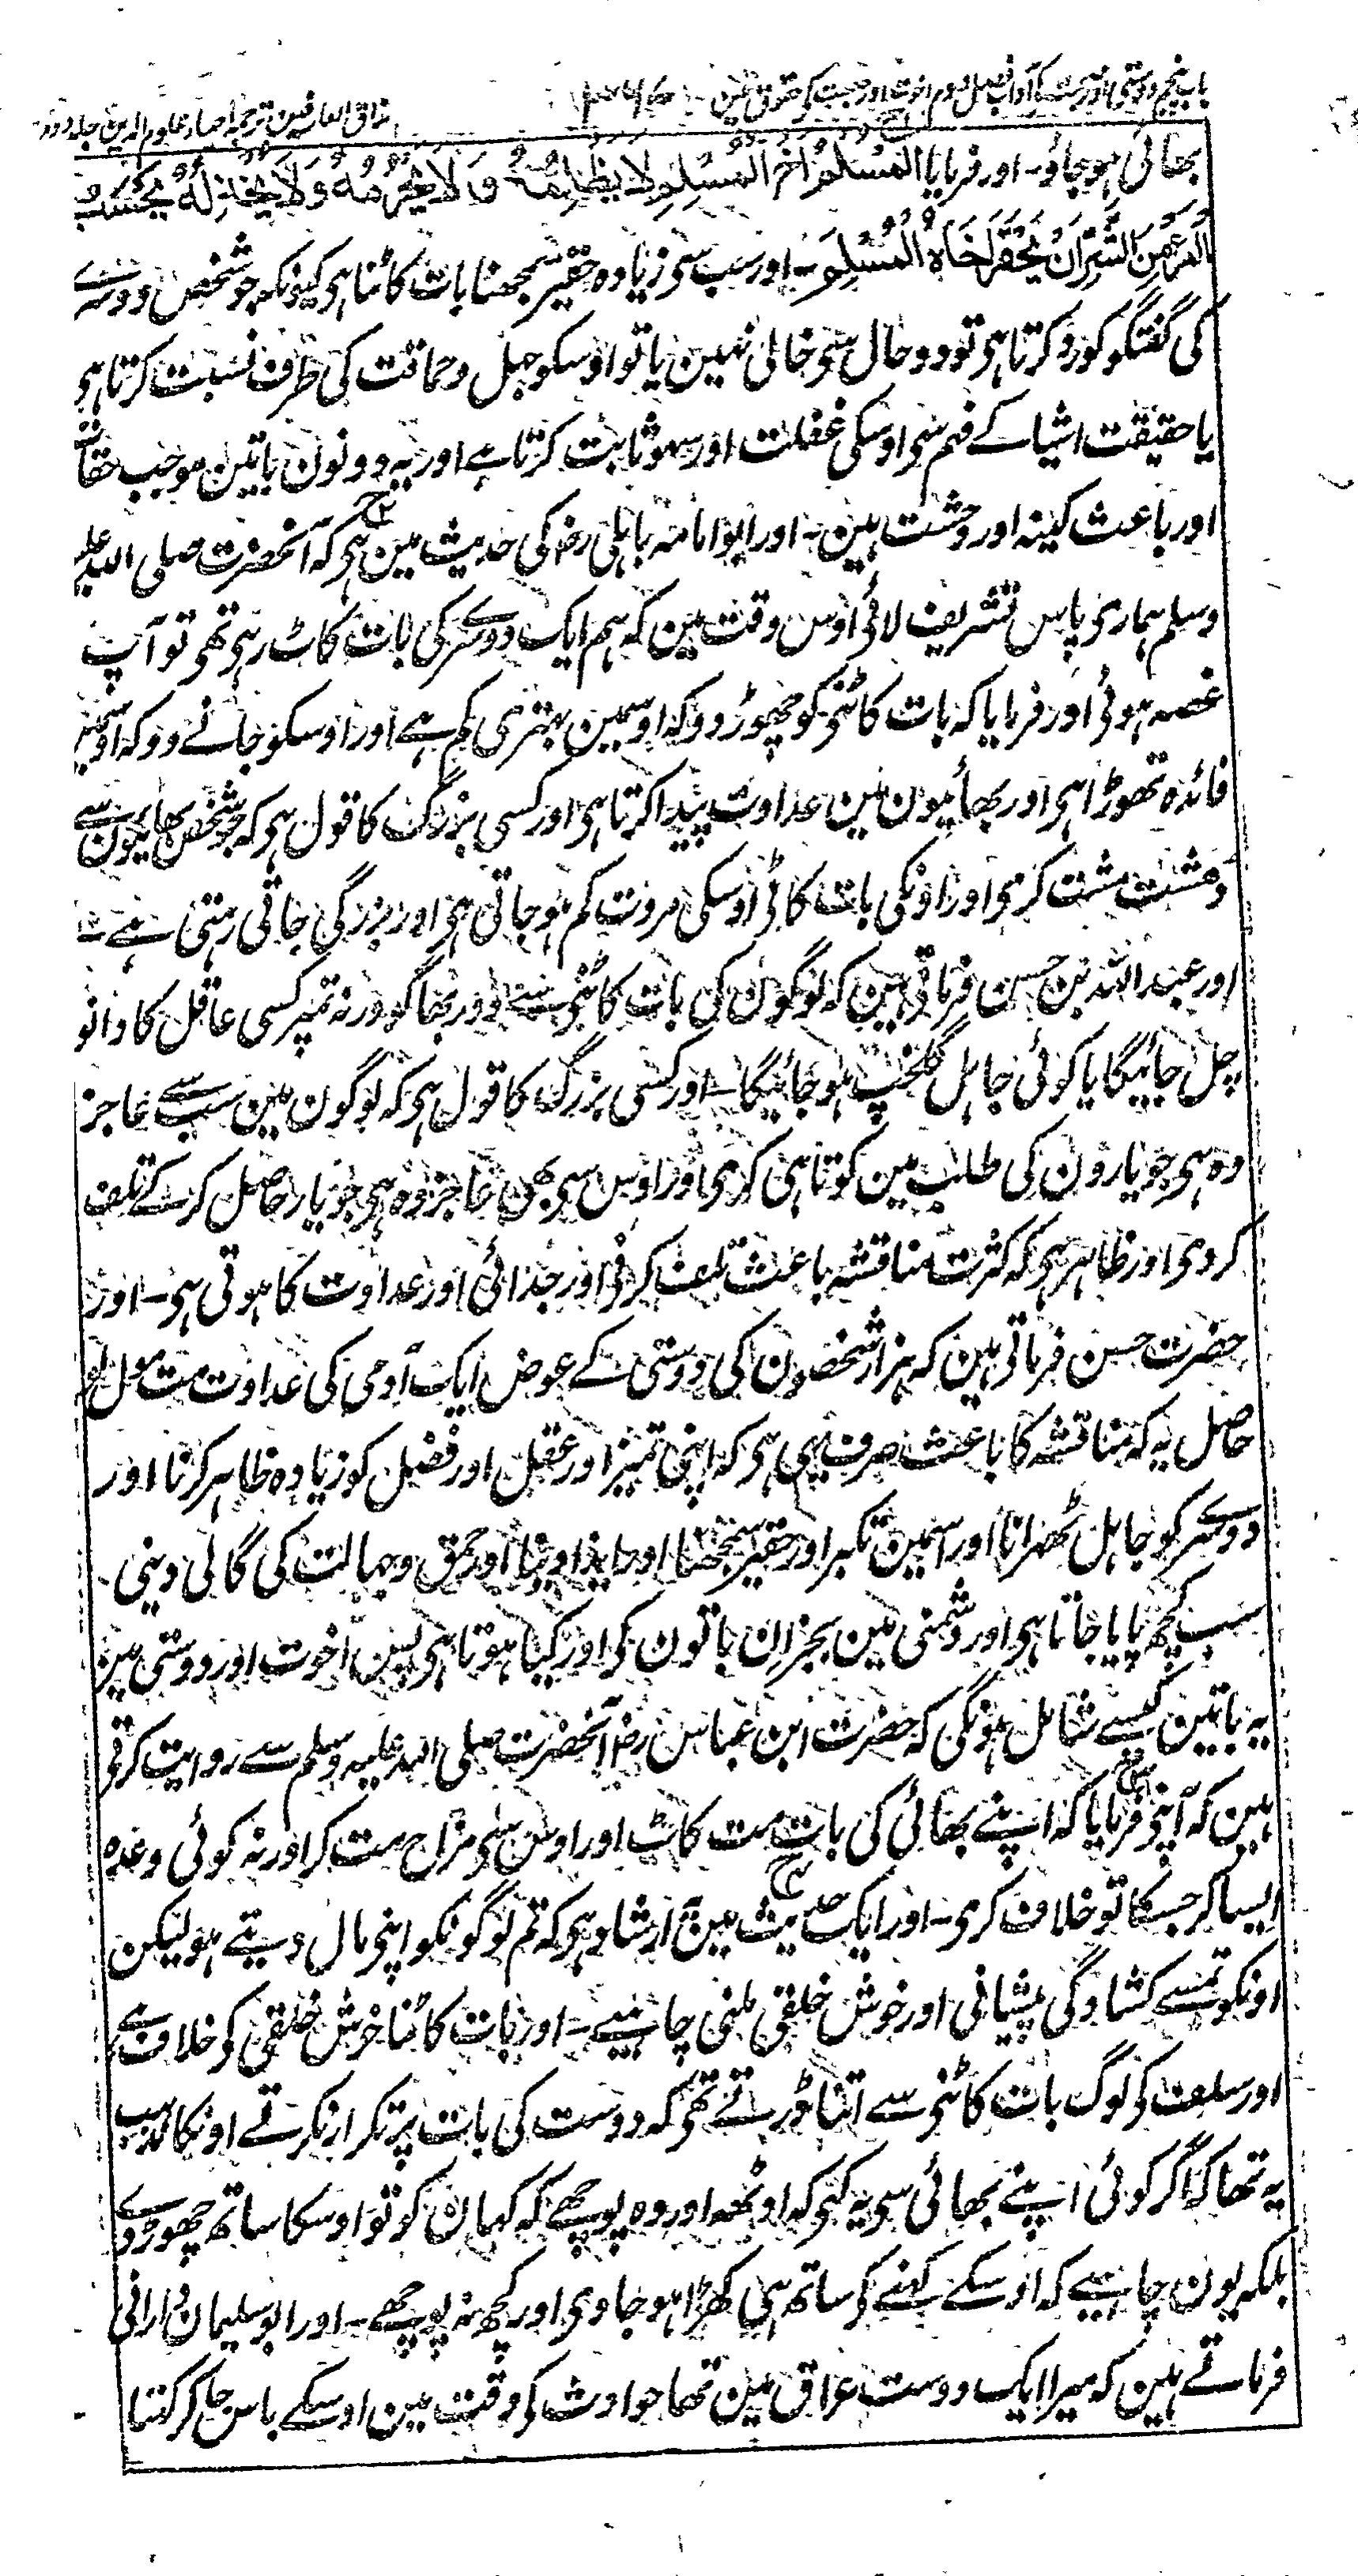 باب پنجم دوستی اور صحبت کے آداب فصل دوم اخوت اور صحبت کے حقوق مین
مذاق العارفین ترجمہ احیاء علوم الدین جلد دوم
بھائی ہو جاؤ۔ اور فرمایا المُسْلِمُ اَخُو المُسْلِمِ لَا یَظْلِمُہٗ وَلَا یَحْرِمُہٗ وَلَا یَخْذِلُہٗ بِحَسْبِ
المَرْءِ مِنَ الشَّرِّ اَنْ یَّحْقِرَ اَخَاہُ الْمُسْلِمَ۔ اور سب سی زیادہ حقیر سمجھنا بات کاٹنا ہی کیونکہ جو شخص دوسرے
کی گفتگو کو رد کرتا ہی تو دو حال سی خالی نہین یا تو اوسکو جہل و حماقت کی طرف نسبت کرتا ہی
یا حقیقت اشیا کے فہم سی اوسکی غفلت اور سہو ثابت کرتا ہے اور یہ دونون باتین موجب حقارت
اور باعث کینہ اور وحشت ہین۔ اور ابو امامہ باہلی رض کی حدیث مین ہی کہ آنحضرت صلی اللہ علیہ
وسلم ہماری پاس تشریف لائی اوس وقت مین کہ ہم ایک دوسرے کی بات کاٹ رہی تھی تو آپ
غصہ ہوئی اور فرمایا کہ بات کاٹنی کو چھوڑ دو کہ اوسمین بہتری کم ہے اور اوسکو جانے دو کہ اوسکا
فائدہ تھوڑا ہی اور بھائیون مین عداوت پیدا کرتا ہی اور کسی بزرگ کا قول ہی کہ جو شخص بھائیون سے
دھشت مشت کری اور اونکی بات کاٹی اوسکی مروت کم ہو جاتی ہی اور بزرگی جاتی رہتی ہے۔
اور عبد اللہ بن حسن فرماتی ہین کہ لوگون کی بات کاٹنی سے دور بھاگو ورنہ تمپر کسی عاقل کا دانو
چل جائیگا یا کوئی جاہل گلخپ ہو جائیگا۔ اور کسی بزرگ کا قول ہی کہ لوگون مین سب سے عاجز
وہ ہی جو یارون کی طلب مین کوتاہی کری اور اوس سی بھی عاجز وہ ہی جو یار حاصل کر کے تلف
کر دی اور ظاہر ہی کہ کثرت مناقشہ باعث تلف کرنی اور جدائی اور عداوت کا ہوتی ہی۔ اور
حضرت حسن فرماتی ہین کہ ہزار شخصون کی دوستی کے عوض ایک آدمی کی عداوت مت مول لو
حاصل یہ کہ مناقشہ کا باعث صرف یہی ہی کہ اپنی تمیز اور عقل اور فضل کو زیادہ ظاہر کرنا اور
دوسرے کو جاہل ٹھرانا اور اسمین تکبر اور حقیر سمجھنا اور ایذا دینا اور حمق و جہالت کی گالی دینی
سب کچھ پایا جاتا ہی اور دشمنی مین بجز ان باتون کی اور کیا ہوتا ہی پس اخوت اور دوستی مین
یہ باتین کیسے شامل ہونگی کہ حضرت ابن عباس رض آنحضرت صلی اللہ علیہ وسلم سے روایت کرتی
ہین کہ آپنی فرمایا کہ اپنے بھائی کی بات مت کاٹ اور اوس سی مزاح مت کر اور نہ کوئی وعدہ
ایسا کر جسکا تو خلاف کری۔ اور ایک حدیث مین ارشاد ہی کہ تم لوگونکو اپنی مال دیتے ہو لیکن
اونکو تمسے کشادگی پیشانی اور خوش خلقی ملنی چاہیے۔ اور بات کاٹنا خوش خلقی کی خلاف ہے
اور سلف کی لوگ بات کاٹنی سے اتنا ڈرتے تھی کہ دوست کی بات پر تکرار نکرتے اونکا مذہب
یہ تھا کہ اگر کوئی اپنے بھائی سی یہ کہی کہ اوٹھ اور وہ پوچھے کہ کہان کو تو اوسکا ساتھ چھوڑ دے
بلکہ یون چاہیے کہ اوسکے کہنے کی ساتھ ہی کھڑا ہو جاوی اور کچھ نہ پوچھے۔ اور ابو سلیمان دارانی
فرماتے ہین کہ میرا ایک دوست عراق مین تھا حوادث کی وقت مین اوسکے پاس جا کر کہتا